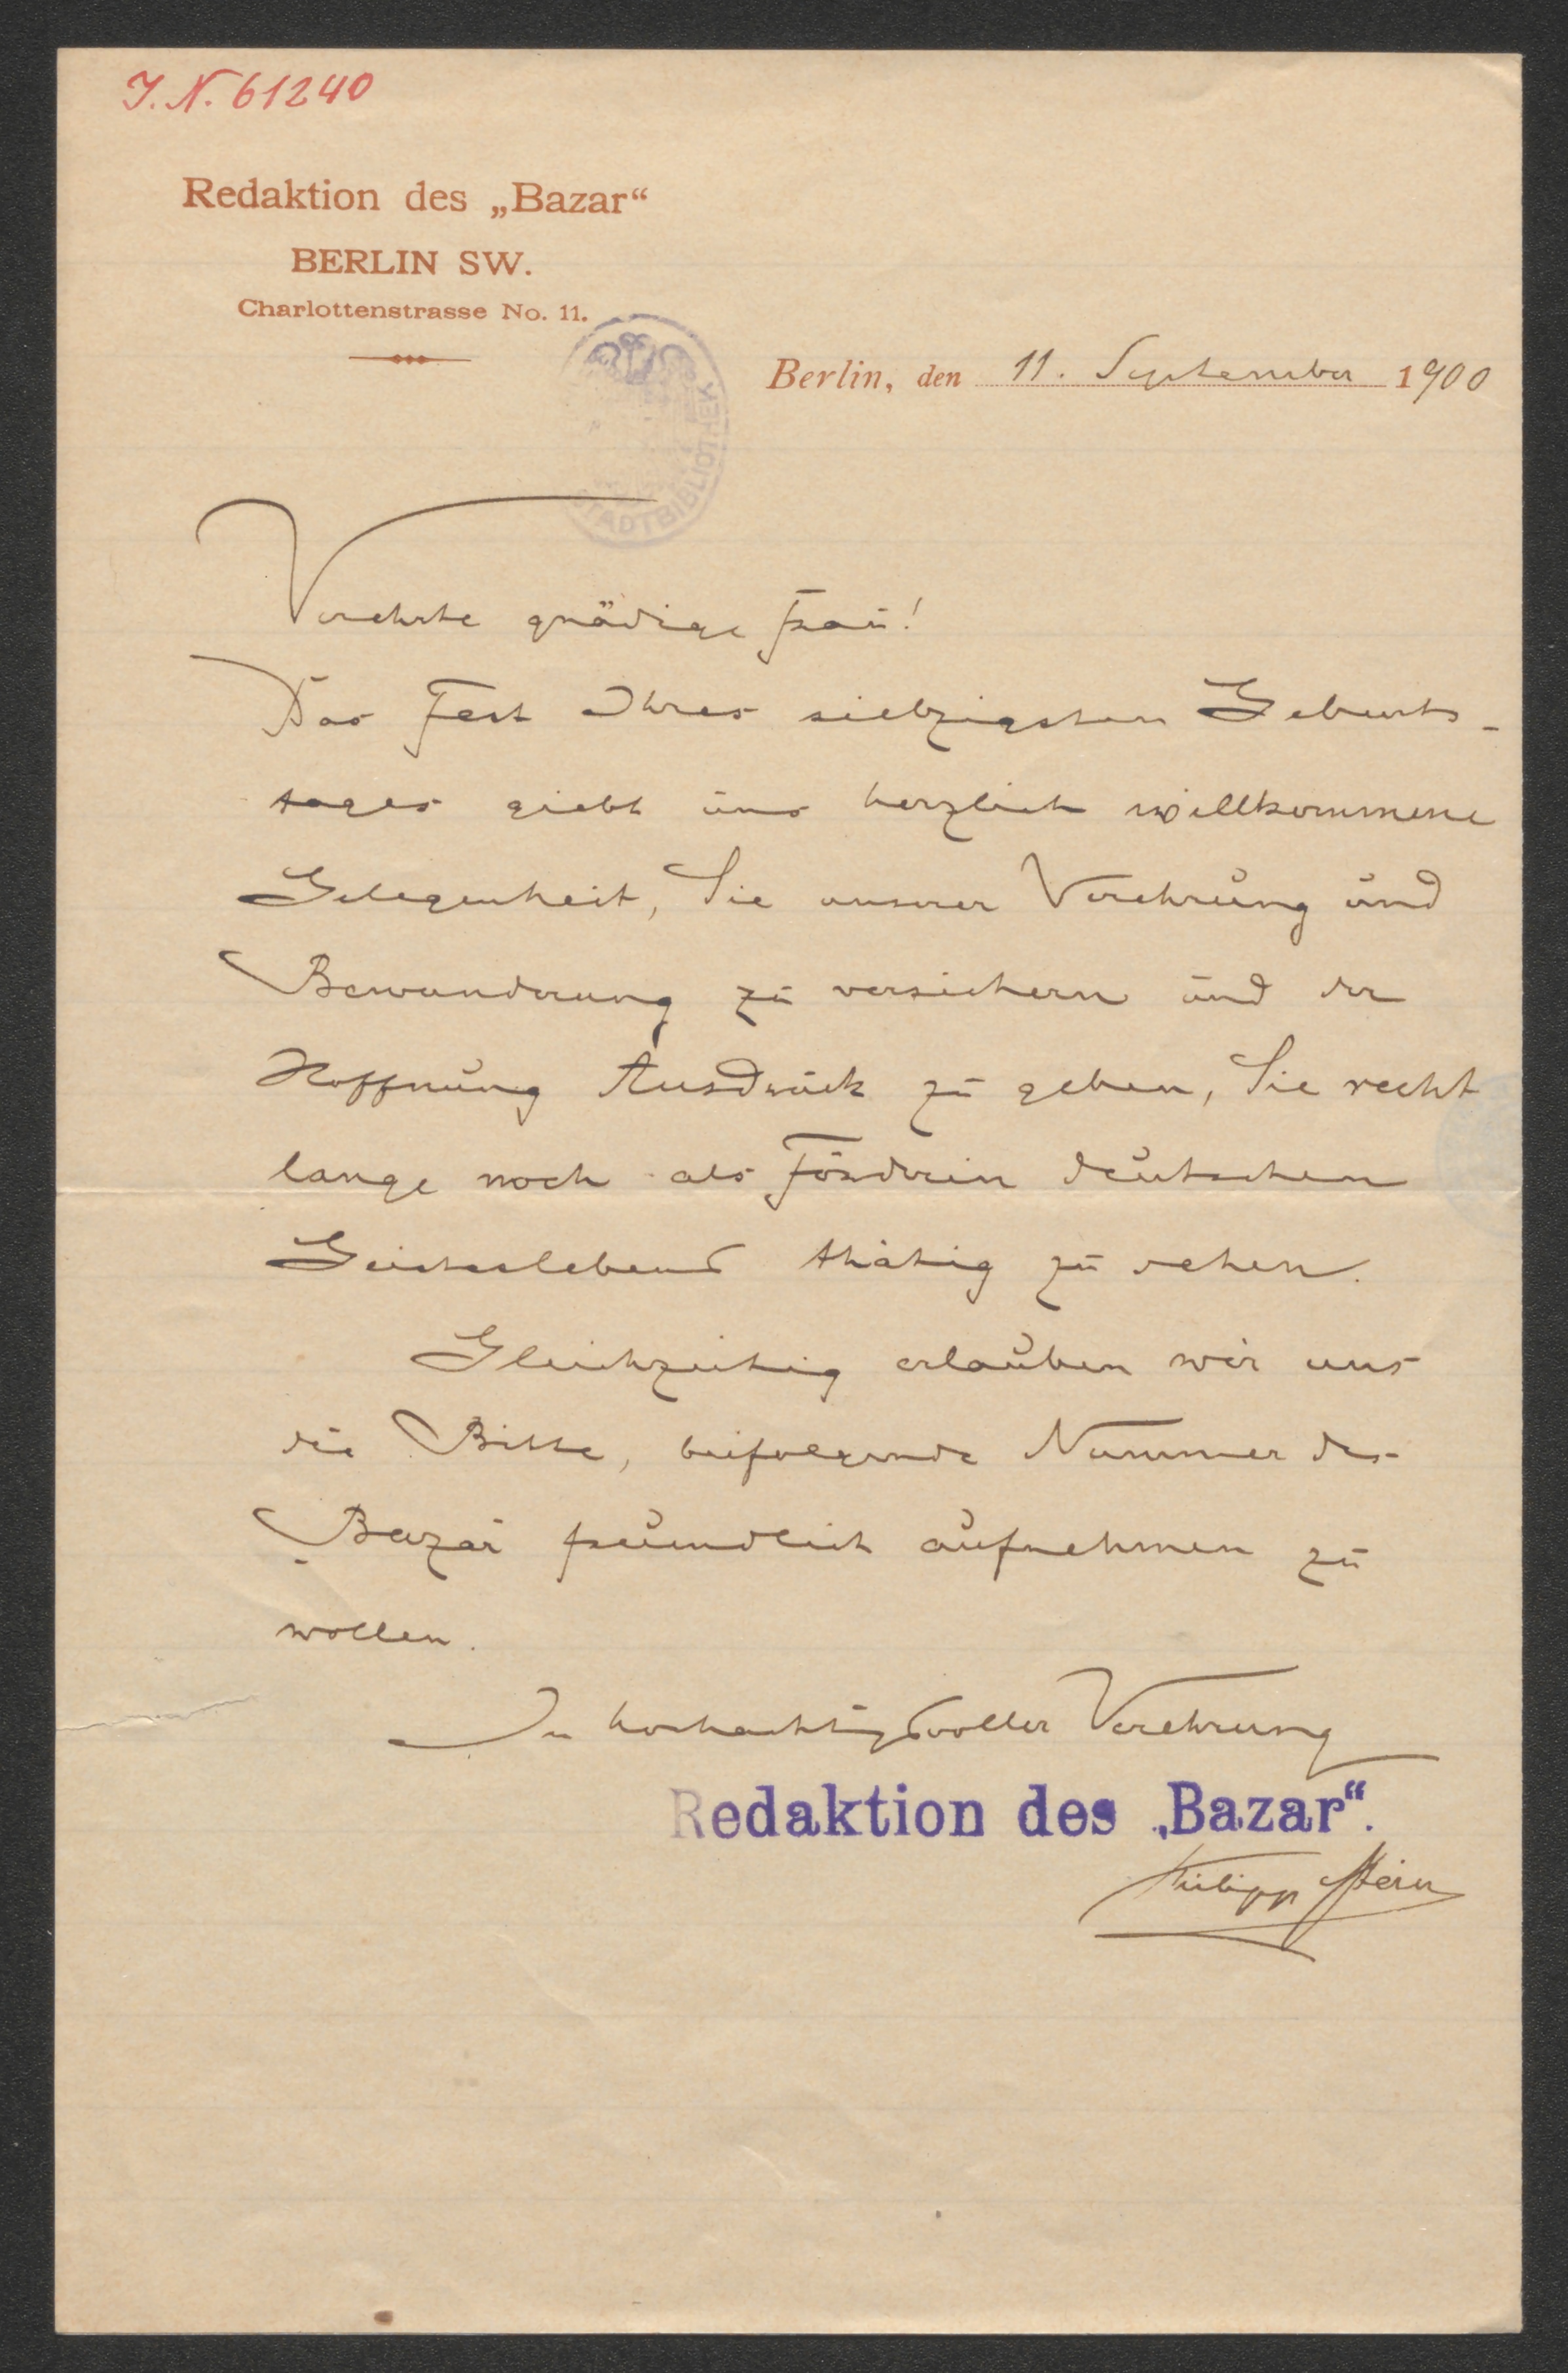 I. N. 61240
Redaktion des „Bazar“
BERLIN SW.
Charlottenstrasse No. 11.
STADTBIBLIOTHEK
Berlin, den 11. September 1900
Verehrte gnädige Frau!
Das Fest Ihres siebzigsten Geburts-
tages giebt uns herzlich willkommene
Gelegenheit, Sie unserer Verehrung und
Bewunderung zu versichern und der
Hoffnung Ausdruck zu geben, Sie recht
lange noch als Förderin deutschen
Geisteslebens thätig zu sehen.
Gleichzeitig erlauben wir uns
die Bitte, beifolgende Nummer des
Bazar freundlich aufnehmen zu
wollen.
In hochachtungsvoller Verehrung
Redaktion des „Bazar“.
Philipp Stein